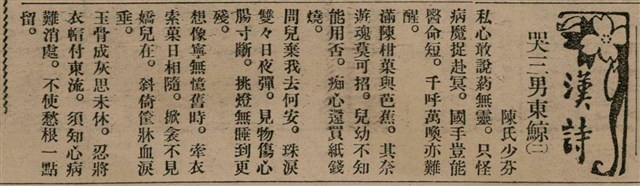 漢詩
哭三男東鯨(二)
陳氏少芬
私心敢說葯無靈。只怪
病魔捉赴冥。國手豈能
醫命短。千呼萬喚亦難
醒。
滿陳柑菓與芭蕉。其奈
遊魂莫可招。兒幼不知
能用否。痴心還買紙錢
燒。
問兒棄我去何安。珠淚
雙々日夜彈。見物傷心
腸寸斷。挑燈無睡到更
殘。
想像寧無憶舊時。牽衣
索菓日相隨。掀衾不見
嬌兒在。斜倚筐牀血淚
垂。
玉骨成灰思未休。忍將
衣帽付東流。須知心病
難消處。不使愁根一點
留。